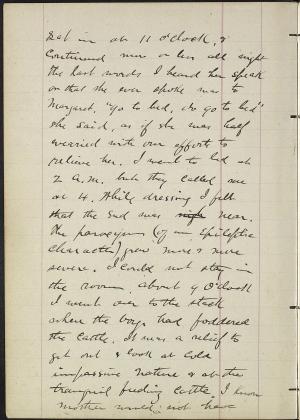 Set in at 11 o'clock, &
continued more or less all night
the last words I heard her speak
or that she ever spoke was to
Margaret, "go to bed, do go to bed"
she said, as if she was half
worried with our efforts to
relieve her. I went to bed at
2 A.M. but they called me
at 4. While dressing I felt
that the end was nigh near.
The paroxysms (of an epileptic
character) grew more & more
severe. I could not stay in
the room. About 9 o'clock
I went over to the stack
where the boys had foddered
the cattle. It was a relief to
get out & look at cold
impassive nature & at the
tranquil feeding cattle. I know
Mother would not have